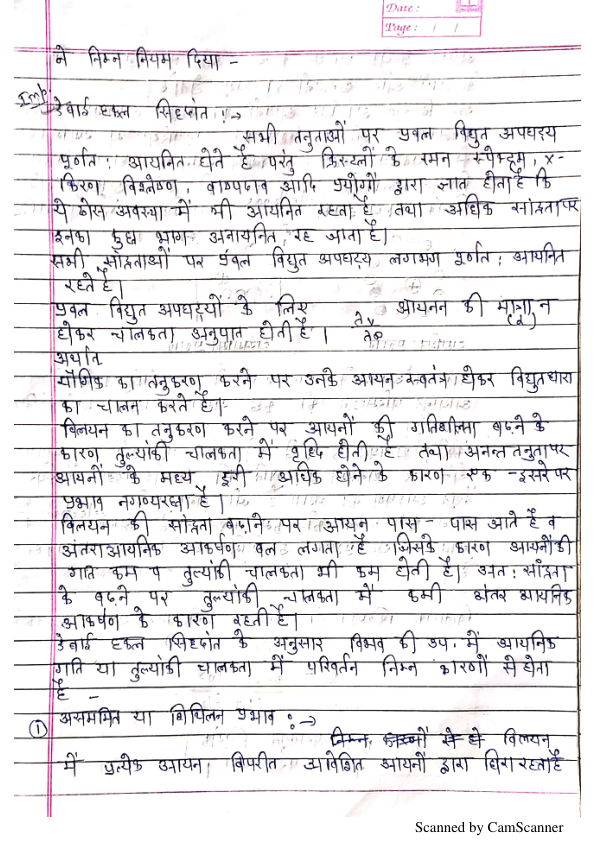 Date :
Page :
ने निम्न नियम दिया -
Imp. डेबाई हकल सिद्धांत :→
सभी तनुताओं पर प्रबल विद्युत अपघट्य
पूर्णत: आयनित होते है परंतु क्रिस्टलों के रमन स्पेक्ट्रम, x-
किरण विश्लेषण, वाष्पदाब आदि प्रयोगों द्वारा ज्ञात होता है कि
ये ठोस अवस्था में भी आयनित रहता है तथा अधिक सांद्रता पर
इनका कुछ भाग अनायनित रह जाता है।
सभी सांद्रताओं पर प्रबल विद्युत अपघट्य लगभग पूर्णत: आयनित
रहते है।
प्रबल विद्युत अपघट्यों के लिए λv/λ∞ आयनन की मात्रा (α) न
होकर चालकता अनुपात होती है।
अर्थात
यौगिक का तनुकरण करने पर उनके आयन स्वतंत्र होकर विद्युतधारा
का चालन करते है।
विलयन का तनुकरण करने पर आयनों की गतिशीलता बढ़ने के
कारण तुल्यांकी चालकता में वृद्धि होती है तथा अनन्त तनुता पर
आयनों के मध्य दूरी अधिक होने के कारण एक - दूसरे पर
प्रभाव नगण्य रहता है।
विलयन की सांद्रता बढ़ाने पर आयन पास - पास आते है व
अंतराआयनिक आकर्षण बल लगता है जिसके कारण आयनों की
गति कम व तुल्यांकी चालकता भी कम होती है। अत: सांद्रता
के बढ़ने पर तुल्यांकी चालकता में कमी अंतर आयनिक
आकर्षण के कारण रहती है।
डेबाई हकल सिद्धांत के अनुसार विभव की उप. में आयनिक
गति या तुल्यांकी चालकता में परिवर्तन निम्न कारणों से होता
है -
① असममित या शिथिलन प्रभाव :→
निम्न कारणों से हो विलयन
में प्रत्येक आयन, विपरीत आवेशित आयनों द्वारा घिरा रहता है
Scanned by CamScanner